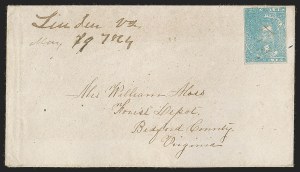 Linden Va
May 19
Mrs William Moss
Forest Depot,
Bedford County,
Virginia